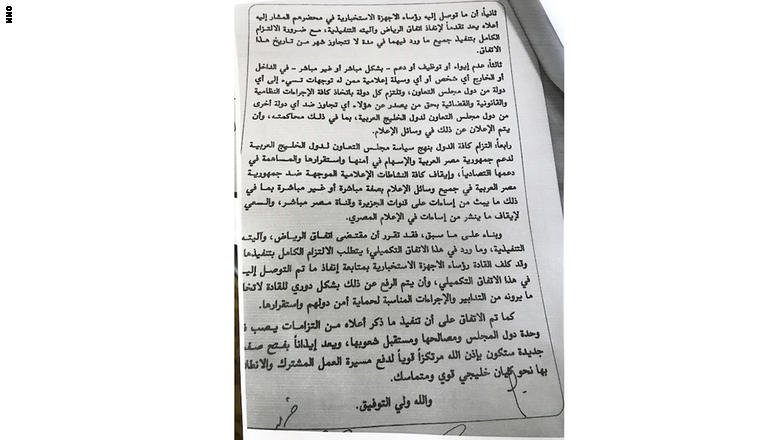 CNN
ثانياً، أن ما توصل إليه رؤساء الأجهزة الاستخبارية في محضرهم المشار إليه
أعلاه يعد تقدماً لإنفاذ اتفاق الرياض وآليته التنفيذية، مع ضرورة الالتزام
الكامل بتنفيذ جميع ما ورد فيهما في مدة لا تتجاوز شهر من تاريخ هذا
الاتفاق.
ثالثاً: عدم إيواء أو توظيف أو دعم – بشكل مباشر أو غير مباشر – في الداخل
أو الخارج أي شخص أو أي وسيلة إعلامية ممن له توجهات تسيء إلى أي
دولة من دول مجلس التعاون، وتلتزم كل دولة باتخاذ كافة الإجراءات النظامية
والقانونية والقضائية بحق من يصدر عن هؤلاء أي تجاوز ضد أي دولة أخرى
من دول مجلس التعاون لدول الخليج العربية، بما في ذلك محاكمته، وأن
يتم الإعلان عن ذلك في وسائل الإعلام.
رابعاً: التزام كافة الدول بنهج سياسة مجلس التعاون لدول الخليج العربية
لدعم جمهورية مصر العربية والإسهام في أمنها واستقرارها والمساهمة في
دعمها اقتصادياً، وإيقاف كافة النشاطات الإعلامية الموجهة ضد جمهورية
مصر العربية في جميع وسائل الإعلام بصفة مباشرة أو غير مباشرة بما في
ذلك ما يبث من إساءات على قنوات الجزيرة وقناة مصر مباشر، والسعي
لإيقاف ما ينشر من إساءات في الإعلام المصري.
وبناء على ما سبق، فقد تقرر أن مقتضى اتفاق الرياض، وآليته
التنفيذية، وما ورد في هذا الاتفاق التكميلي؛ يتطلب الالتزام الكامل بتنفيذها
وقد كلف القادة رؤساء الأجهزة الاستخبارية بمتابعة إنفاذ ما تم التوصل
في هذا الاتفاق التكميلي، وأن يتم الرفع عن ذلك بشكل دوري للقادة
ما يرونه من التدابير والإجراءات المناسبة لحماية أمن دولهم واستقرارها.
كما تم الاتفاق على أن تنفيذ ما ذكر أعلاه من التزامات يصب
وحدة دول المجلس ومصالحها ومستقبل شعوبها، ويعد إيذاناً بفتح
جديدة ستكون بإذن الله مرتكزاً قوياً لدفع مسيرة العمل المشترك
بها نحو كيان خليجي قوي ومتماسك.
والله ولي التوفيق.